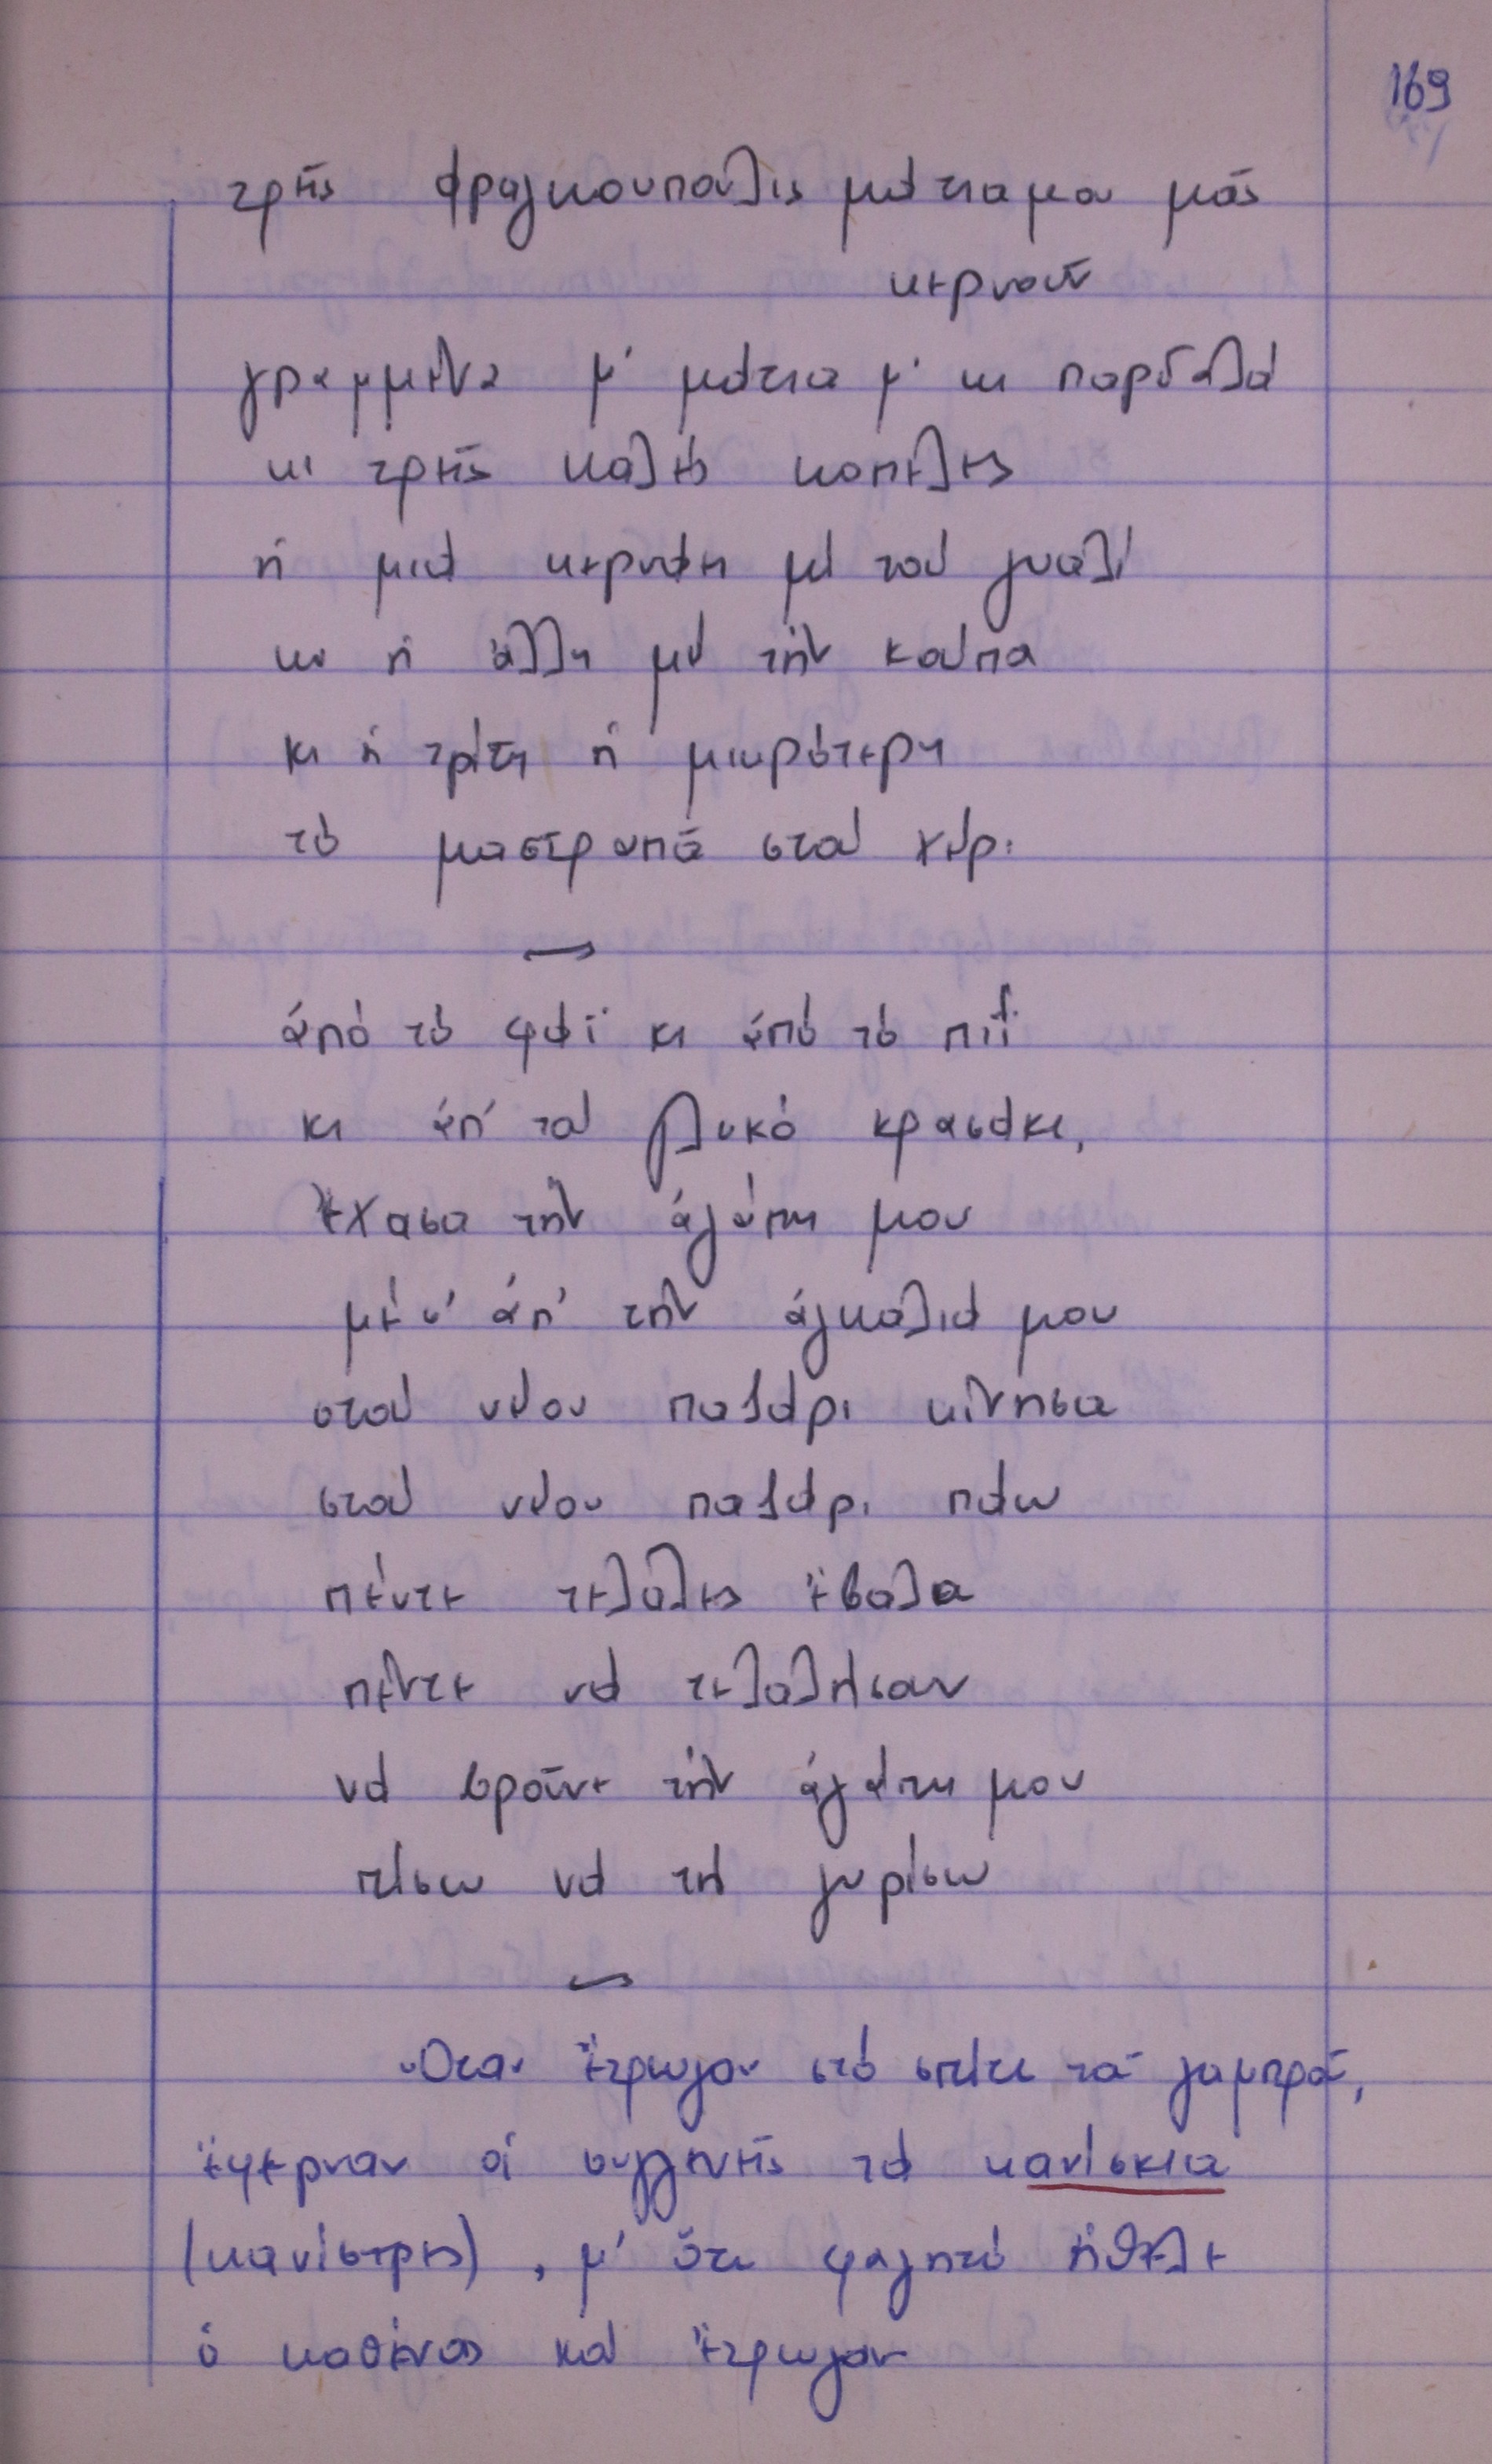 169
τρεῖς φραγκουπούλις μάτια μου μᾶς
κερνοῦν
γραμμένα μ' μάτια μ' κι παρδαλά
κι τρεῖς καλές κοπέλες
ἡ μιά κερνάει μέ τού γυαλί
κι ἡ ἄλλη μέ τήν κούπα
κι ἡ τρίτη ἡ μικρότερη
τό μαστραπά στού χέρι
ἀπό τό φάϊ κι ἀπό τό πιῖ
κι ἀπ' τού γλυκό κρασάκι,
ἔχασα τήν ἀγάπη μου
μέσ' ἀπ' τήν ἀγκαλιά μου
στού νέου παζάρι κίνησα
στού νέου παζάρι πάω
πέντε τελάλες ἔβαλα
πέντε νά τελαλήσουν
νά βροῦνε τήν ἀγάπη μου
πίσω νά τή γυρίσω
Ὅταν ἔτρωγαν στό σπίτι τοῦ γαμπροῦ,
ἔφερναν οἱ συγγενεῖς τά κανίσκια
(κανίστρες), μ' ὅτι φαγητό ἤθελε
ὁ καθένας καί ἔτρωγαν